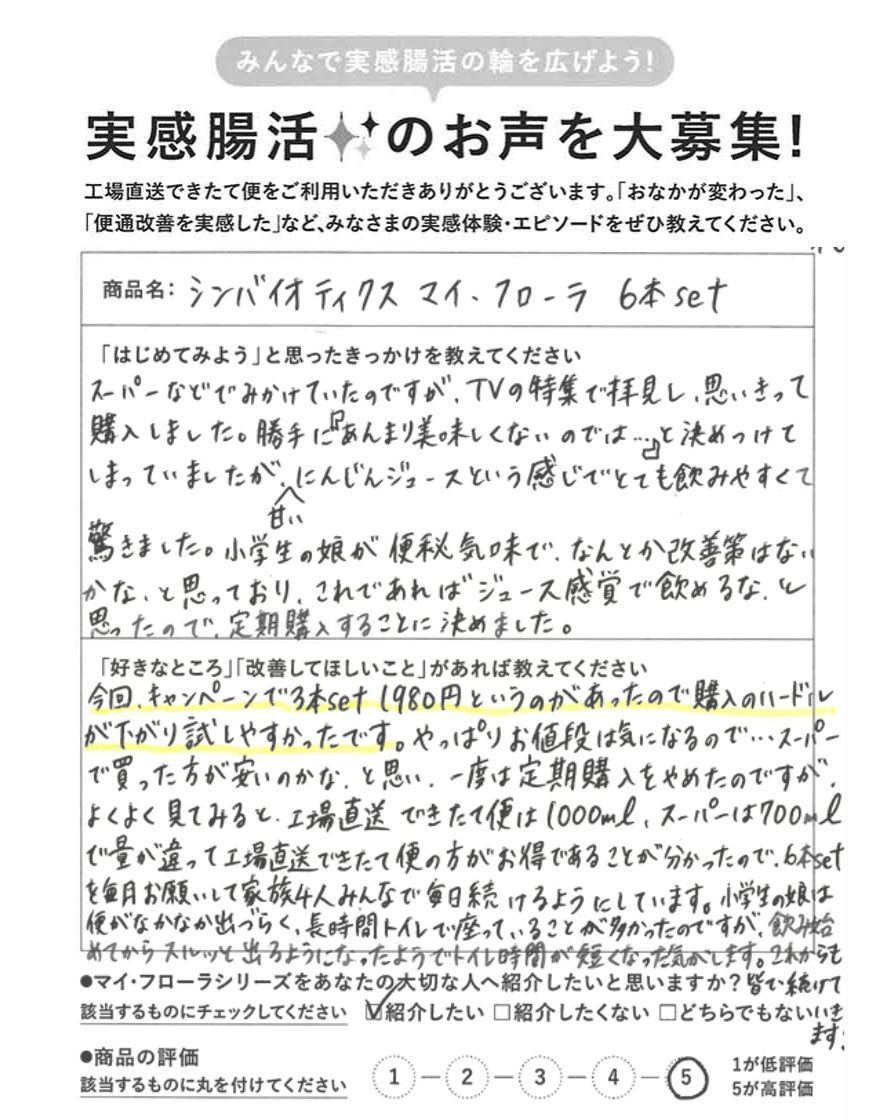 みんなで実感腸活の輪を広げよう!
実感腸活のお声を大募集!
工場直送できたて便をご利用いただきありがとうございます。「おなかが変わった」、
「便通改善を実感した」など、みなさまの実感体験・エピソードをぜひ教えてください。
商品名: シンバイオティクス マイ・フローラ 6本set
「はじめてみよう」と思ったきっかけを教えてください
スーパーなどでみかけていたのですが、TVの特集で拝見し、思いきって
購入しました。勝手に『あんまり美味しくないのでは…』と決めつけて
しまっていましたが、甘いにんじんジュースという感じでとても飲みやすくて
驚きました。小学生の娘が便秘気味で、なんとか改善策はない
かな、と思っており、これであればジュース感覚で飲めるな、と
思ったので、定期購入することに決めました。
「好きなところ」「改善してほしいこと」があれば教えてください
今回、キャンペーンで3本set 1980円というのがあったので購入のハードル
が下がり試しやすかったです。やっぱりお値段は気になるので…スーパー
で買った方が安いのかな、と思い、一度は定期購入をやめたのですが、
よくよく見てみると、工場直送できたて便は1000ml、スーパーは700ml
で量が違って工場直送できたて便の方がお得であることが分かったので、6本set
を毎月お願いして家族4人みんなで毎日続けるようにしています。小学生の娘は
便がなかなか出づらく、長時間トイレで座っていることが多かったのですが、飲み始
めてからスルッと出るようになったようでトイレ時間が短くなった気がします。これからも
皆で続けていきます!
●マイ・フローラシリーズをあなたの大切な人へ紹介したいと思いますか?
該当するものにチェックしてください ☑紹介したい □紹介したくない □どちらでもない
●商品の評価
該当するものに丸を付けてください
1 2 3 4 5
1が低評価
5が高評価